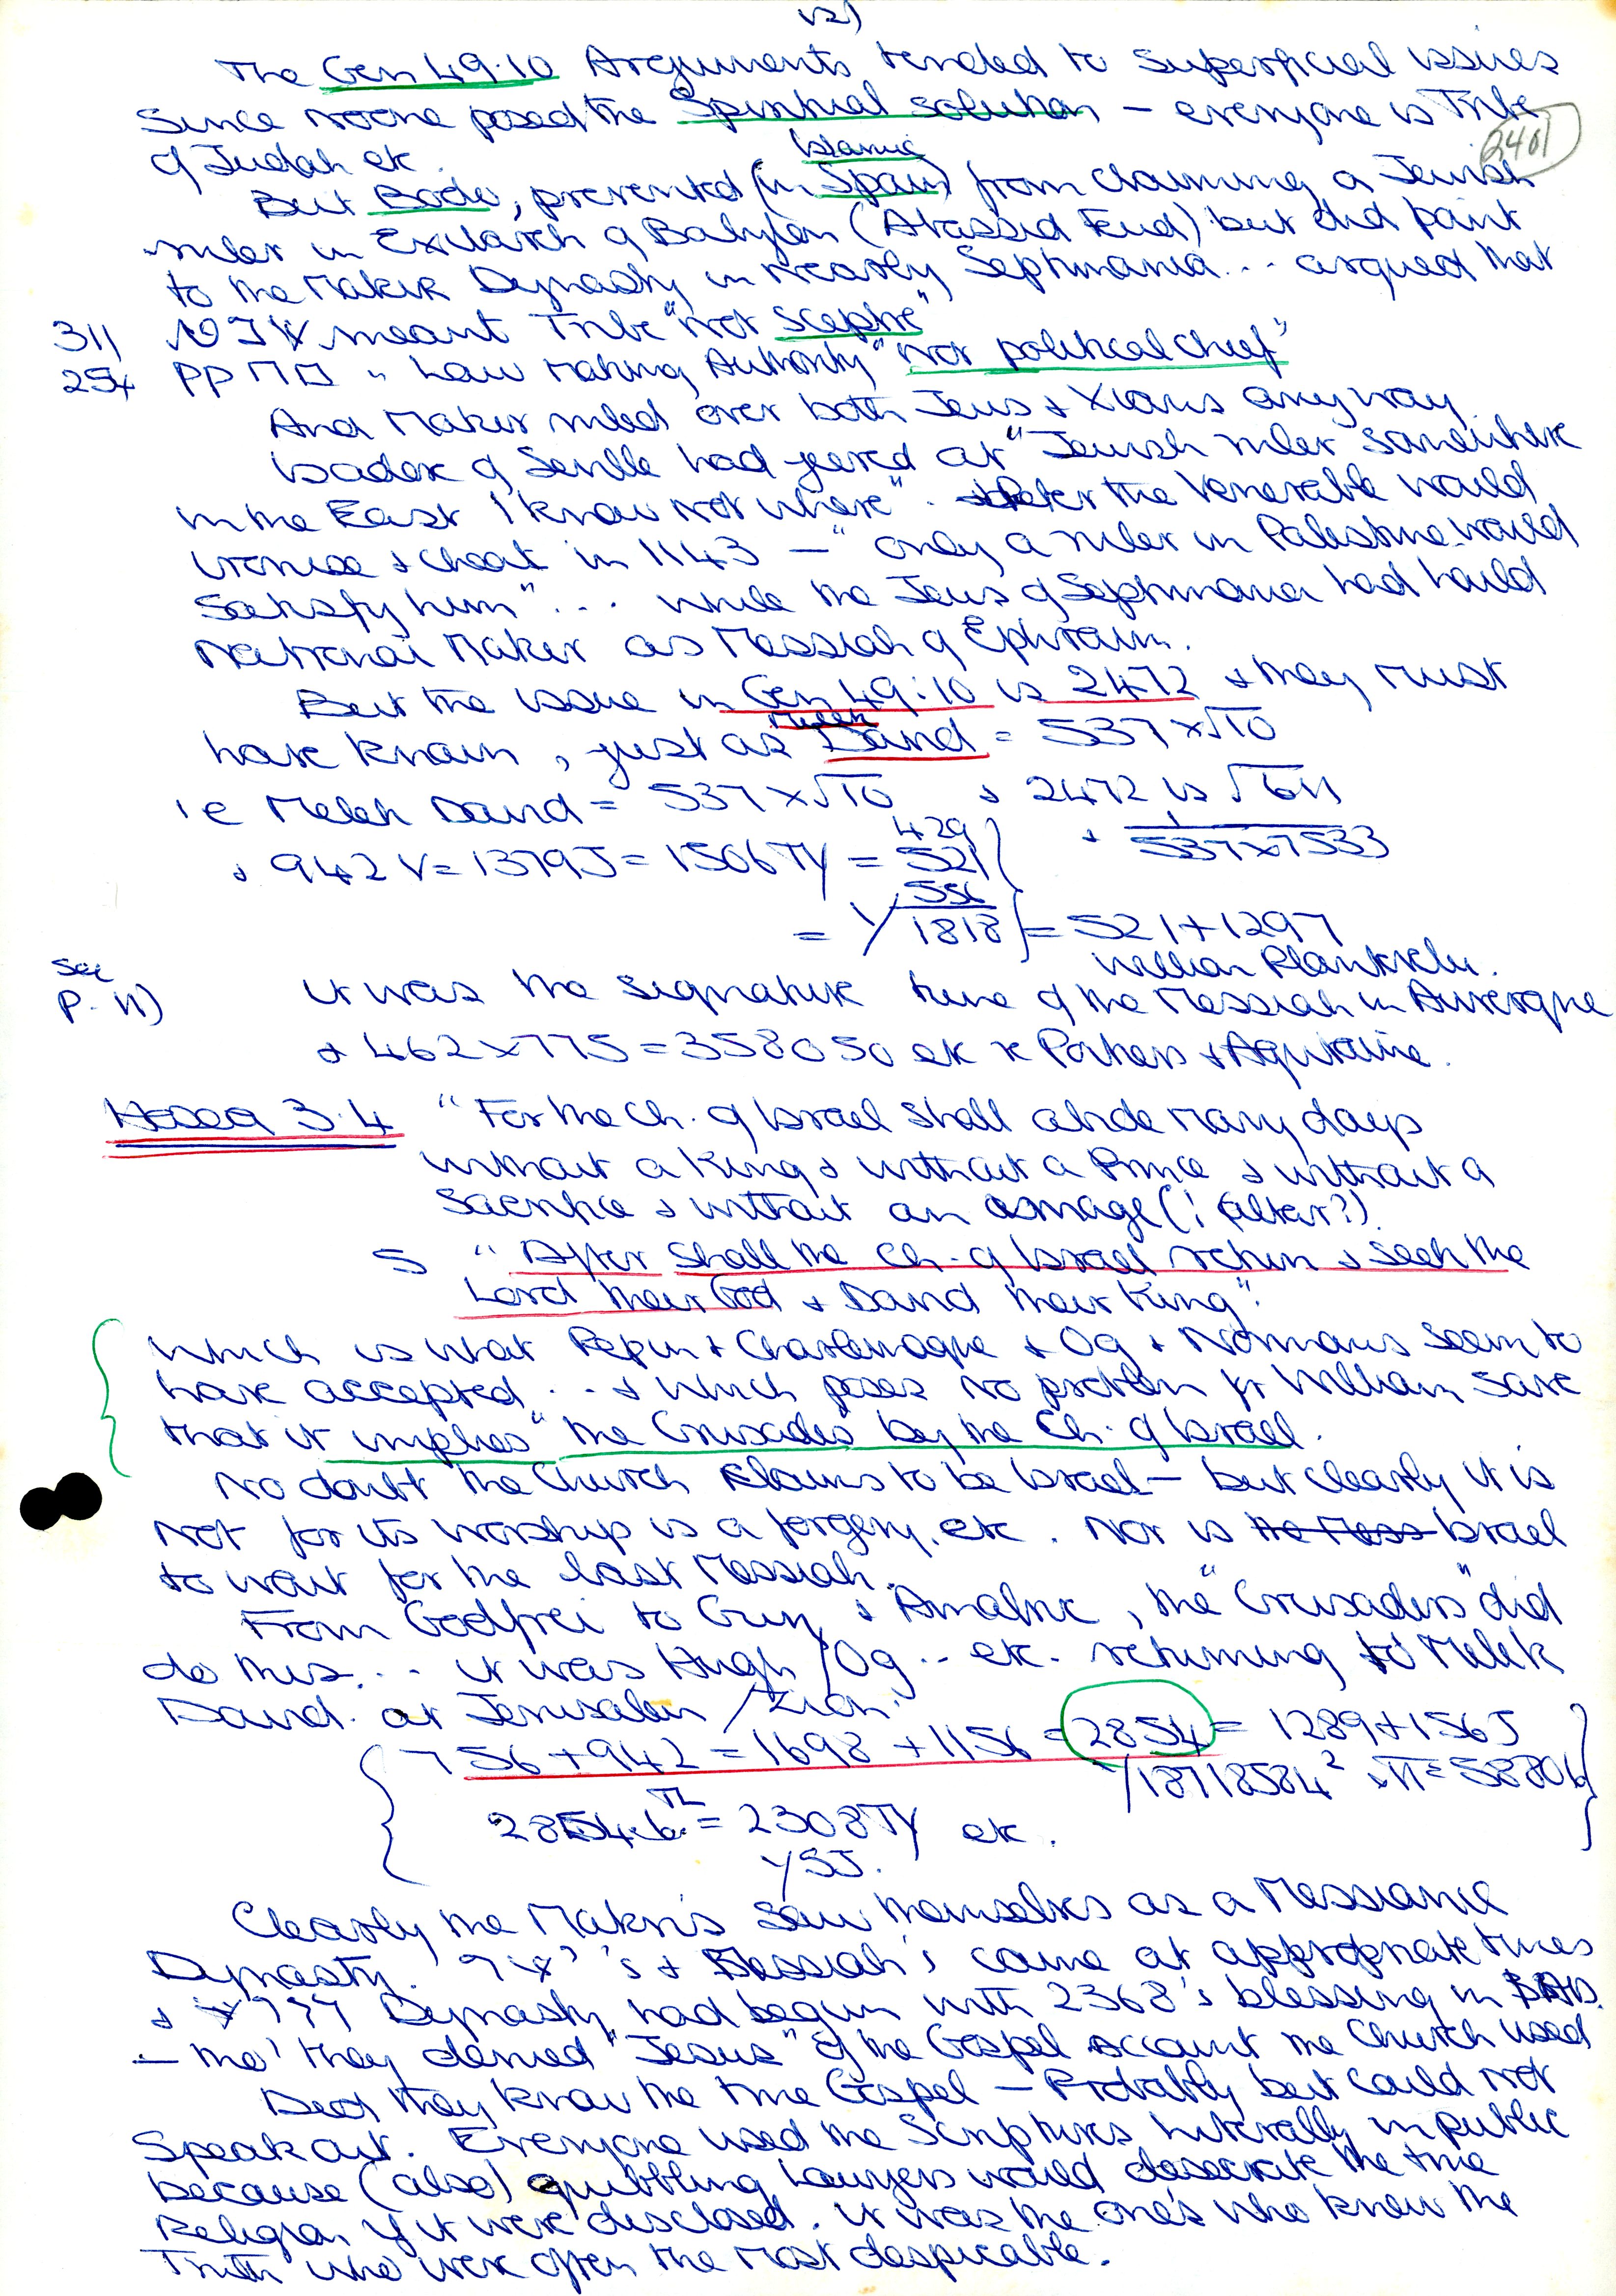 12)
The Gen 49.10 Arguments tended to superficial issues
Since noone posed the Spiritual solution – everyone is Tribe
2401
of Judah etc.
Islamic
But Bodo, prevented (in Spain) from claiming a Jewish
ruler in Exilarch of Babylon (Abassid Feud) but did point
to the Makir Dynasty in nearby Septimania... argued that
311 meant Tribe "not sceptre"
254 " Law Making Authority "not political chief"
And Makir ruled over both Jews & Xians anyway.
Isadore of Seville had jeered at "Jewish ruler somewhere
in the East I know not where". Peter the Venerable would
ironise & cheat in 1143 – "only a ruler in Palestine would
Satisfy him"... while the Jews of Septimania had hailed
Natronai Makir as Messiah of Ephraim.
But the issue in Gen 49:10 is 2472 & they must
Melek
have known, just as David = 537 x √10
i e Melek David = 537 x √10 & 2472 is √611
& 942 V = 1379J = 1506TY = 429 521 + 1/537x7533
= Y 556/1818 = 521 + 1297
William Plantvelu.
See
P. 11) It was the signature tune of the Messiah in Auvergne
& 462 x 775 = 358050 etc x Poitiers & Aquitaine.
Hosea 3.4 "For the Ch. of Israel shall abide many days
without a King & without a Prince & without a
Sacrifice & without an image (! altar?).
5 "After shall the Ch. of Israel return & seek the
Lord their God & David their King".
Which is what Pepin & Charlemagne & Og & Normans seem to
have accepted... & which poses no problem for William save
that it implies "the Crusades" by the Ch. of Israel.
No doubt the Church claims to be Israel – but clearly it is
not for its worship is a forgery. etc. Nor is the Mess Israel
to wait for the last Messiah.
From Godfrei to Guy & Amalric, the "Crusaders" did
do this... it was Hugh / Og .. etc. returning to Melek
David. at Jerusalem / Zion.
756 + 942 = 1698 + 1156 = 2854 = 1289 + 156J
Y18718584² & π = 58806
2854.6 TL = 2308TY etc.
YSJ.
Clearly the Makiris saw themselves as a Messianic
Dynasty. 's & Messiah's came at appropriate times
& Dynasty had begun with 2368's blessing in
– tho' they denied "Jesus" of the Gospel account the Church used
Did they know the true Gospel – Probably but could not
Speak out. Everyone used the Scriptures literally in public
because (also) quibbling Lawyers would desecrate the true
Religion if it were disclosed. It was the one's who knew the
Truth who were often the most despicable.